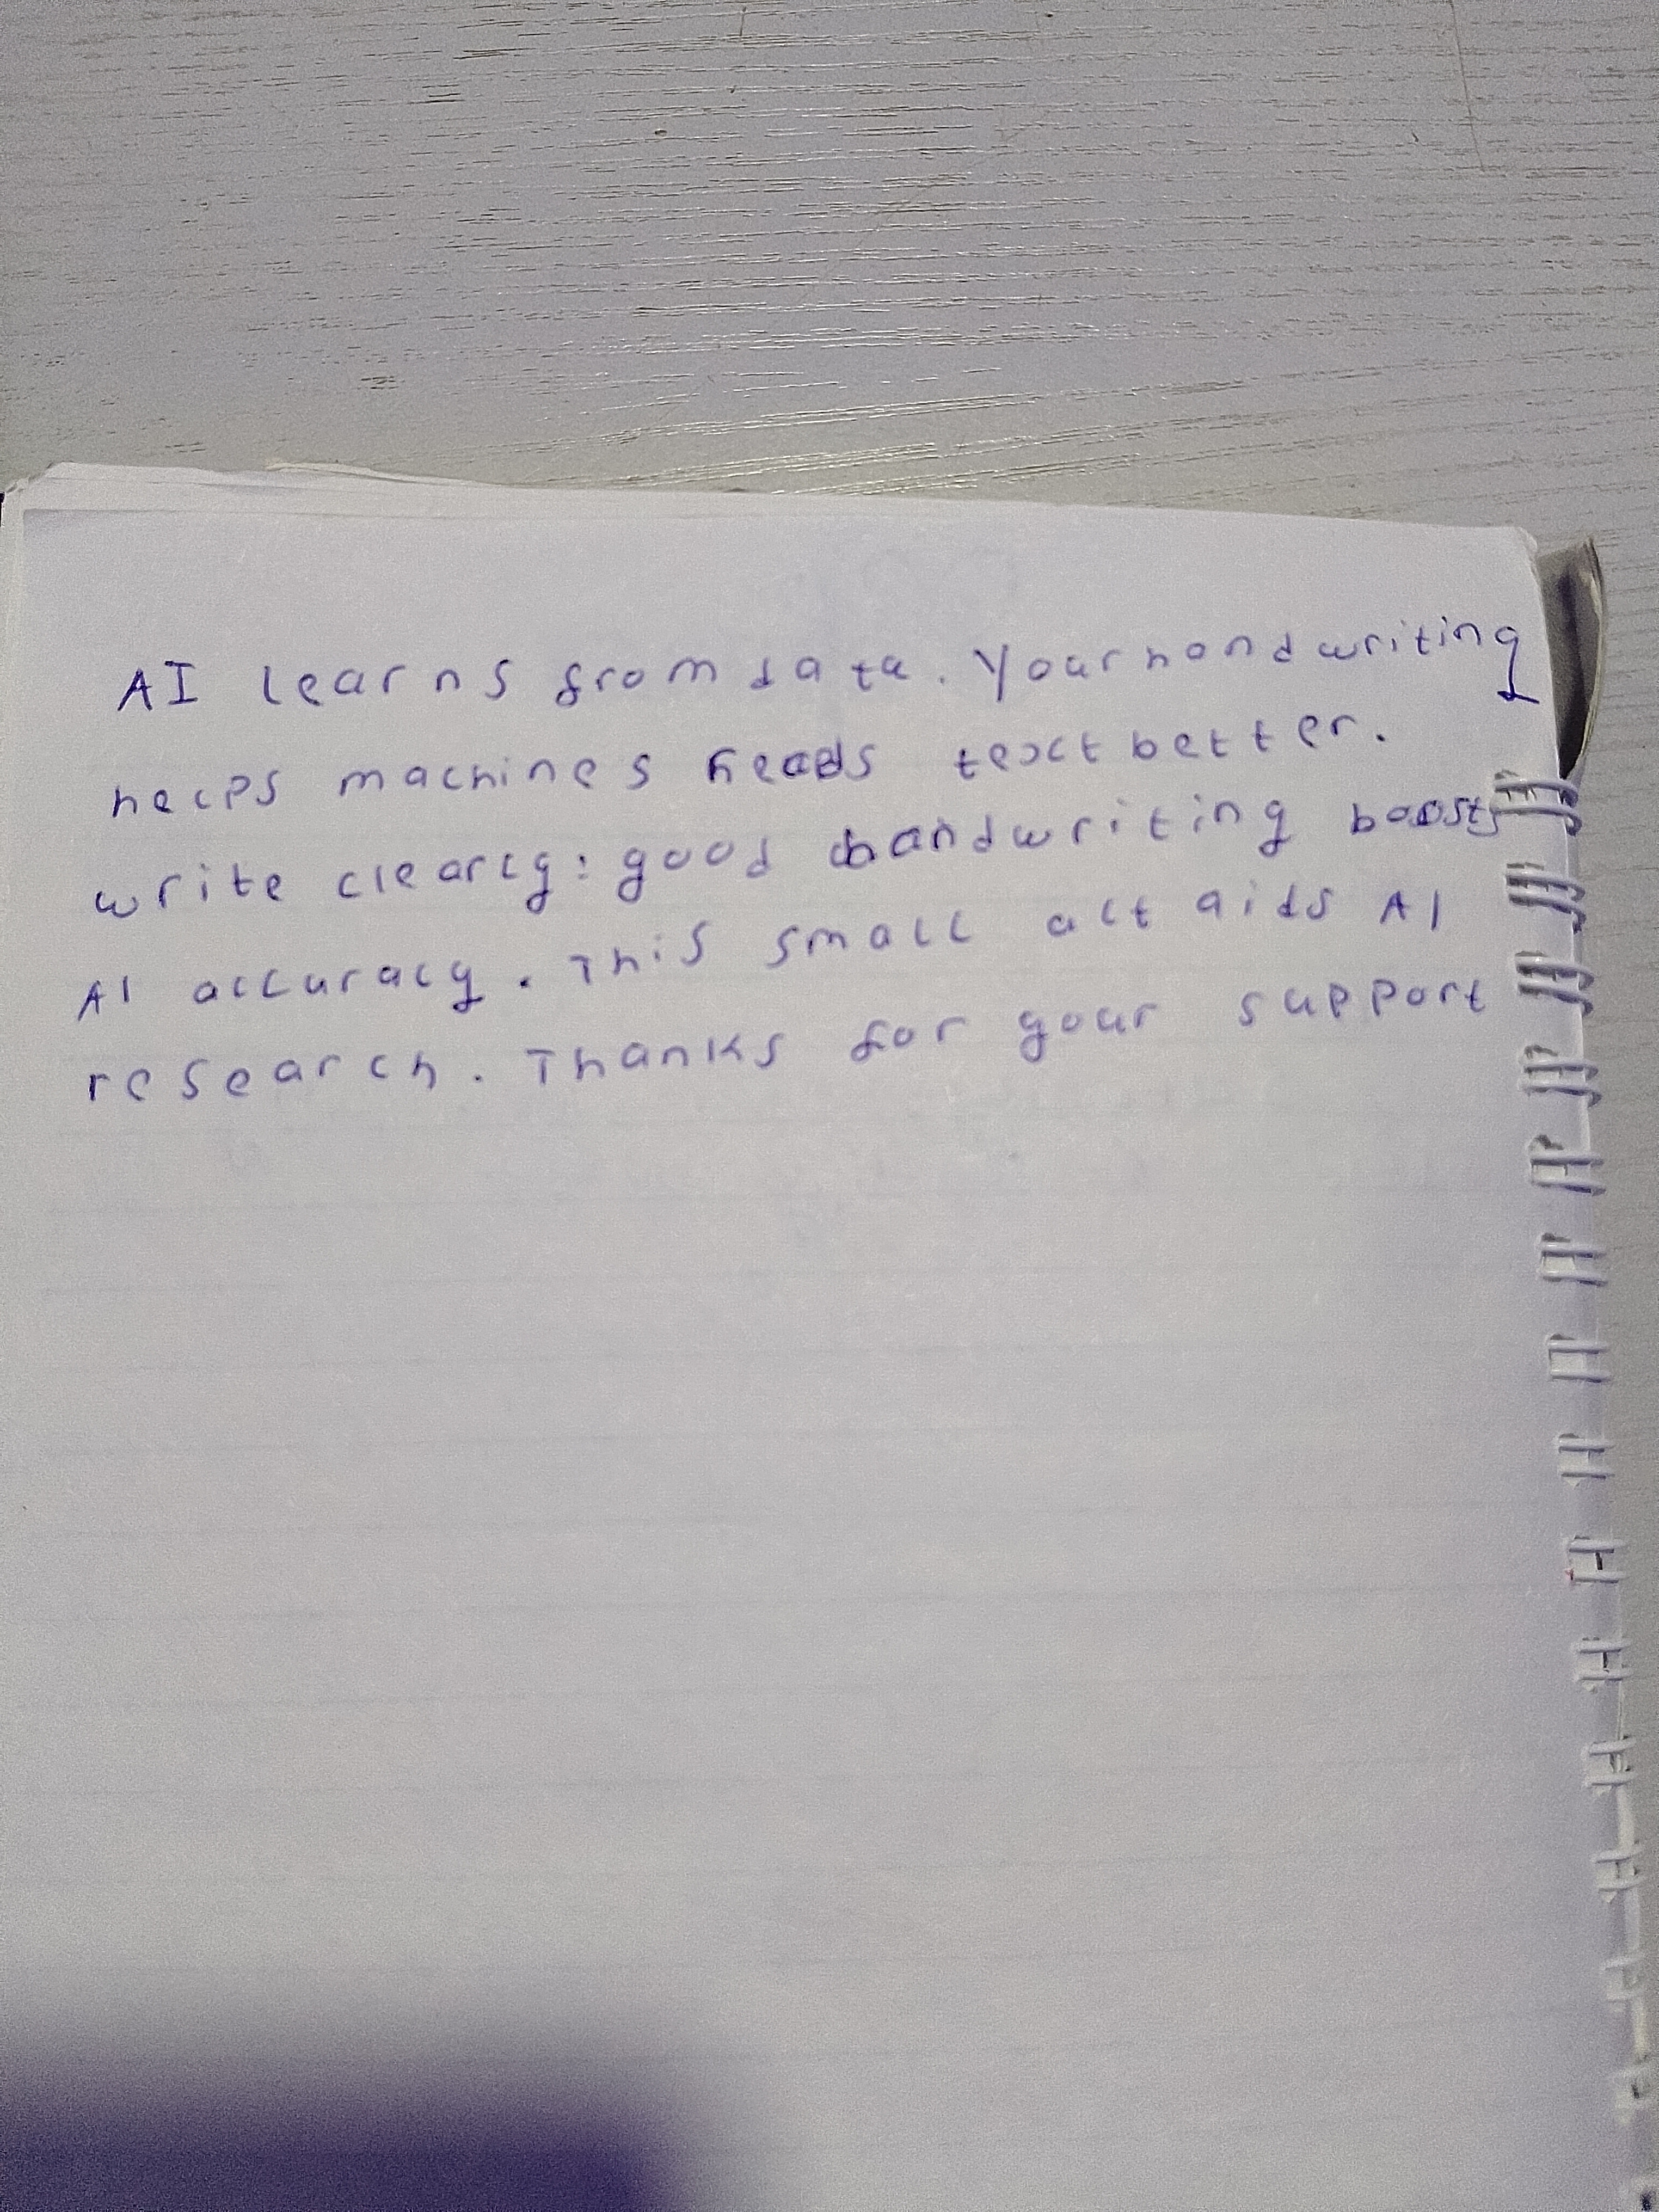 AI learns from data. Your handwriting
helps machines reads text better.
write clearly: good handwriting boosts
AI accuracy. This small act aids AI
research. Thanks for your support